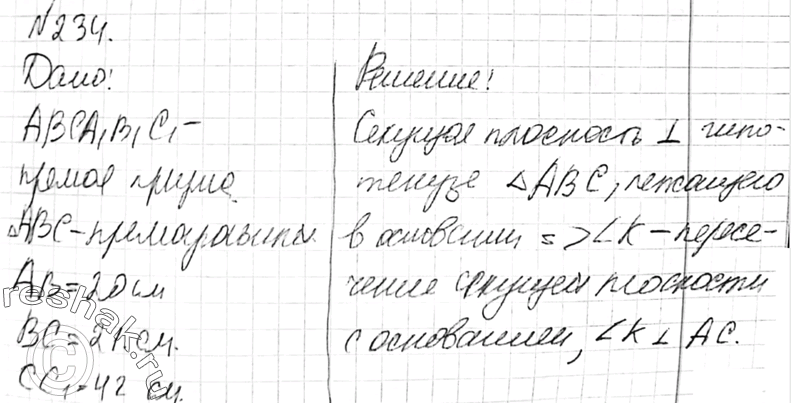 №234.
Дано:
ABCA₁B₁C₁ –
прямая призма
△ABC – прямоугольн.
AB = 20 см
BC = 21 см.
CC₁ = 42 см.
Решение:
Секущая плоскость ⊥ гипо-
тенузе △ABC, лежащего
в основании => LK – пересе-
чение секущей плоскости
с основанием, LK ⊥ AC.
reshak.ru